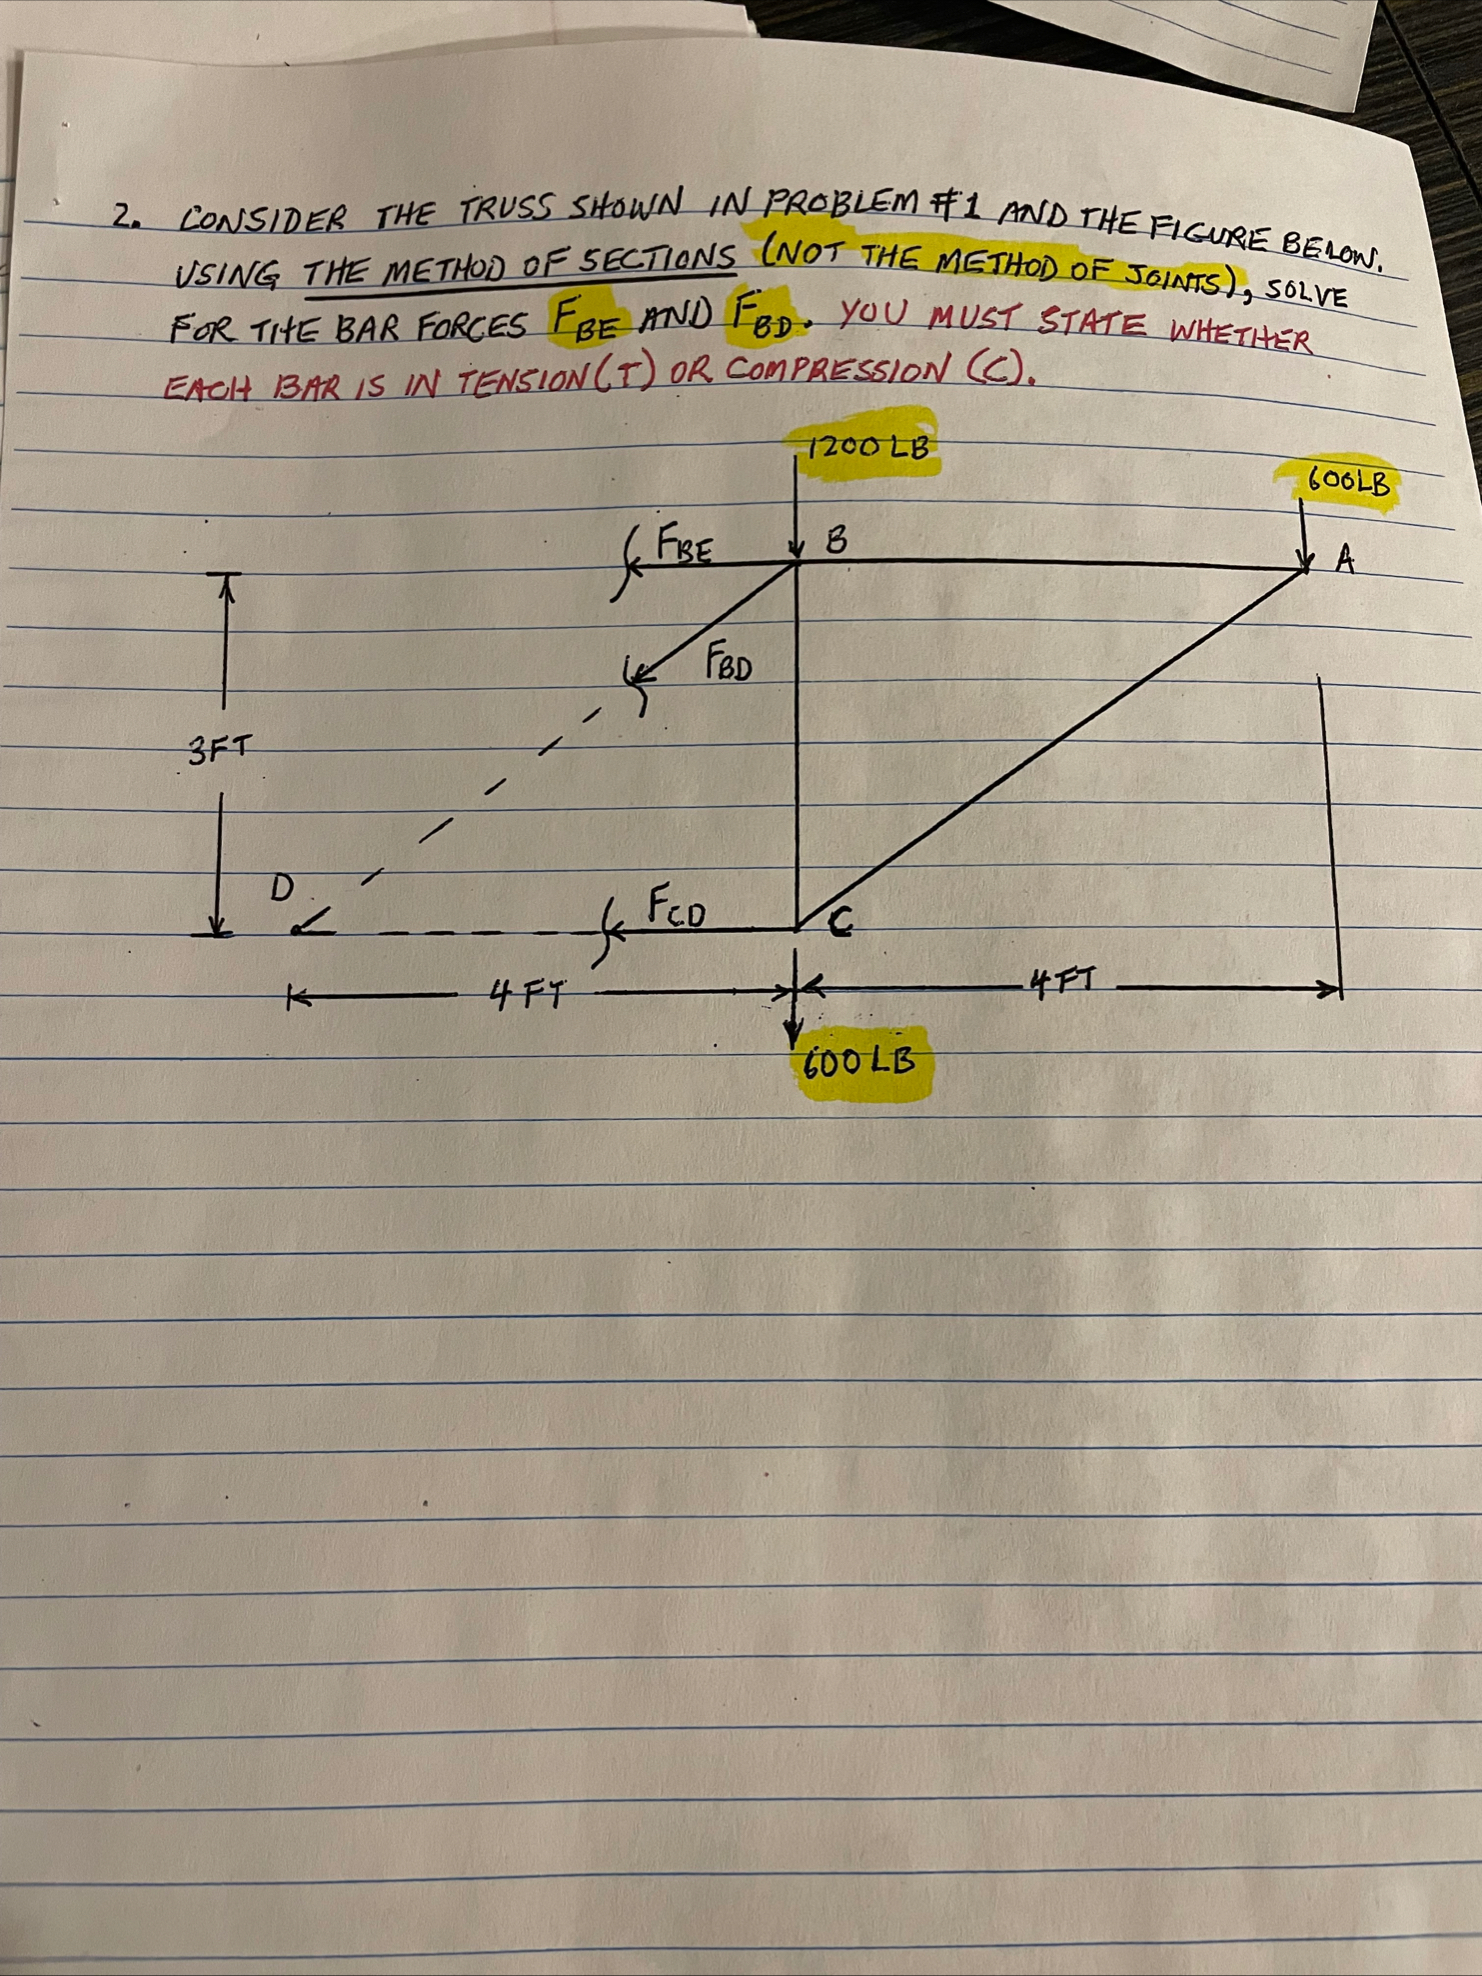 2. CONSIDER THE TRUSS SHOWN IN PROBLEM #1 AND THE FIGURE BELOW.
USING THE METHOD OF SECTIONS (NOT THE METHOD OF JOINTS), SOLVE
FOR THE BAR FORCES FBE AND FBD. YOU MUST STATE WHETHER
EACH BAR IS IN TENSION (T) OR COMPRESSION (C).
1200 LB
600LB
FBE
B
A
FBD
3FT
D
FCD
C
4 FT
4 FT
600 LB